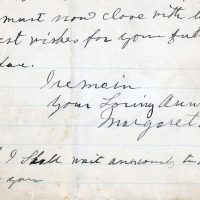 must now close with
est wishes for your
I remain
Your Loving Aun
Margaret
I Shall wait anxiously to
you